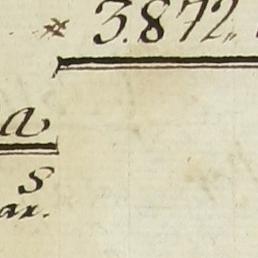 # 3.872,,
a
S
ax.